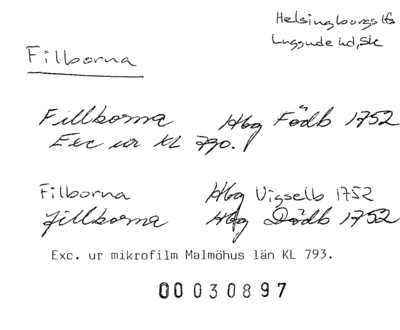 Helsingborgs lfs
Luggude hd, Sk
Filborna
Fillborna Hbg Födb 1752
Exc ur KL 790.
Filborna Hbg Vigselb 1752
Fillborna Hbg Dödb 1752
Exc. ur mikrofilm Malmöhus län KL 793.
00030897